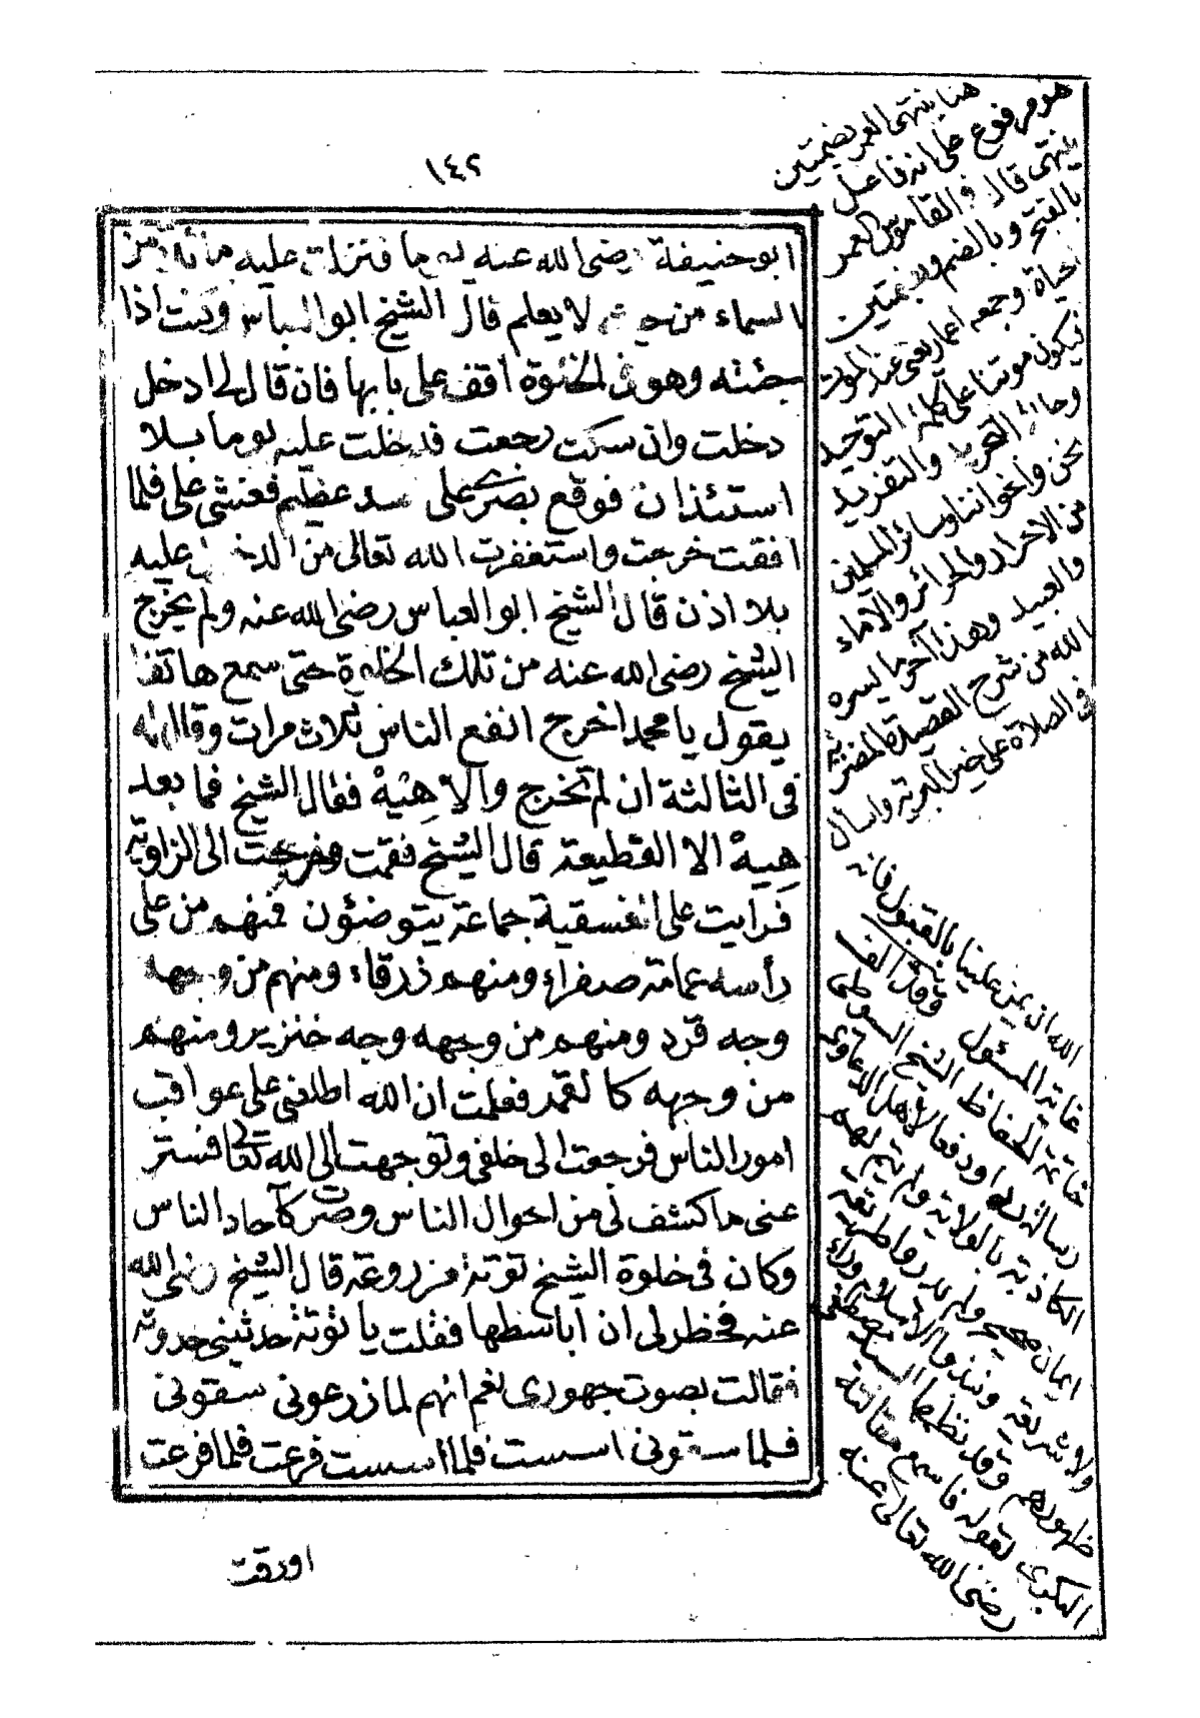 ١٤٢
ابو حنيفة رضى الله عنه يوما فنزلت عليه مائدة من
السماء من حيث لا يعلم قال الشيخ ابو العباس وكنت اذا
جئته وهو فى الخلوة اقف على بابها فان قال لى ادخل
دخلت وان سكت رجعت فدخلت عليه يوما بلا
استئذان فوقع بصرى على اسد عظيم فغشى على فلما
افقت خرجت واستغفرت الله تعالى من الدخول عليه
بلا اذن قال الشيخ ابو العباس رضى الله عنه ولم يخرج
الشيخ رضى الله عنه من تلك الخلوة حتى سمع هاتفا
يقول يا محمد اخرج انفع الناس ثلاث مرات وقال له
فى الثالثة ان لم تخرج والا هِيْهْ فقال الشيخ فما بعد
هِيهْ الا القطيعة قال الشيخ فقمت وخرجت الى الزاوية
فرايت على الفسقية جماعة يتوضئون فمنهم من على
رأسه عمامة صفراء ومنهم زرقاء ومنهم من وجهه
وجه قرد ومنهم من وجهه وجه خنزير ومنهم
من وجهه كالقمر فعلمت ان الله اطلعنى على عواقب
امور الناس فرجعت الى خلفى وتوجهت الى الله تعالى فستر
عنى ما كشف لى من احوال الناس وصرت كآحاد الناس
وكان فى خلوة الشيخ توتة مزروعة قال الشيخ رضى الله
عنه فخطر لى ان اباسطها فقلت يا توتة حدثينى حدوتة
فقالت بصوت جهورى نعم انهم لما زرعونى سقونى
فلما سقونى اسست فلما اسست فرعت فلما فرعت
اورقت
هنا ينتهى العمر بضمتين
هو مرفوع على انه فاعل
ينتهى قال فى القاموس العمر
بالفتح وبالضم وبضمتين
الحياة وجمعه اعمار يعنى عند الموت
فيكون موتنا على كلمة التوحيد
وحالة التجريد والتفريد
نحن واخواننا وسائر المسلمين
من الاحرار والحرائر والاماء
والعبيد وهذا آخر ما يسره
الله من شرح القصيدة المضرية
فى الصلاة على خير البرية واسال
الله ان يمن علينا بالقبول فانه
غاية المسئول وقد الف
خاتمة الحفاظ الشيخ السيوطى
رسالة ودفعا لاهل الدعاوى
الكاذبة بالولاية ولم يتم لهم
ايمان صحيح ولم يدروا طريقة
ولا شريعة ونبذوا الاسلام وراء
ظهورهم وقد نظمها السيد مصطفى
البكرى بقوله فاسمع مقالته
رضى الله تعالى عنه